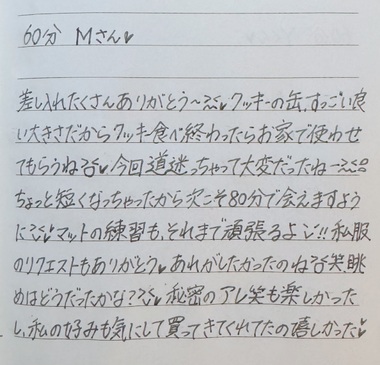 60分 Mさん♥
差し入れたくさんありがとう〜♥クッキーの缶、すっごい良
い大きさだからクッキー食べ終わったらお家で使わせ
てもらうね♥今回道迷っちゃって大変だったねー
ちょっと短くなっちゃったから次こそ80分で会えますよう
に♥マットの練習も、それまで頑張るよ!!私服
のリクエストもありがとう♥あれがしたかったのね笑眺
めはどうだったかな?秘密のアレ笑も楽しかった
し、私の好みも気にして買ってきてくれてたの嬉しかった♥